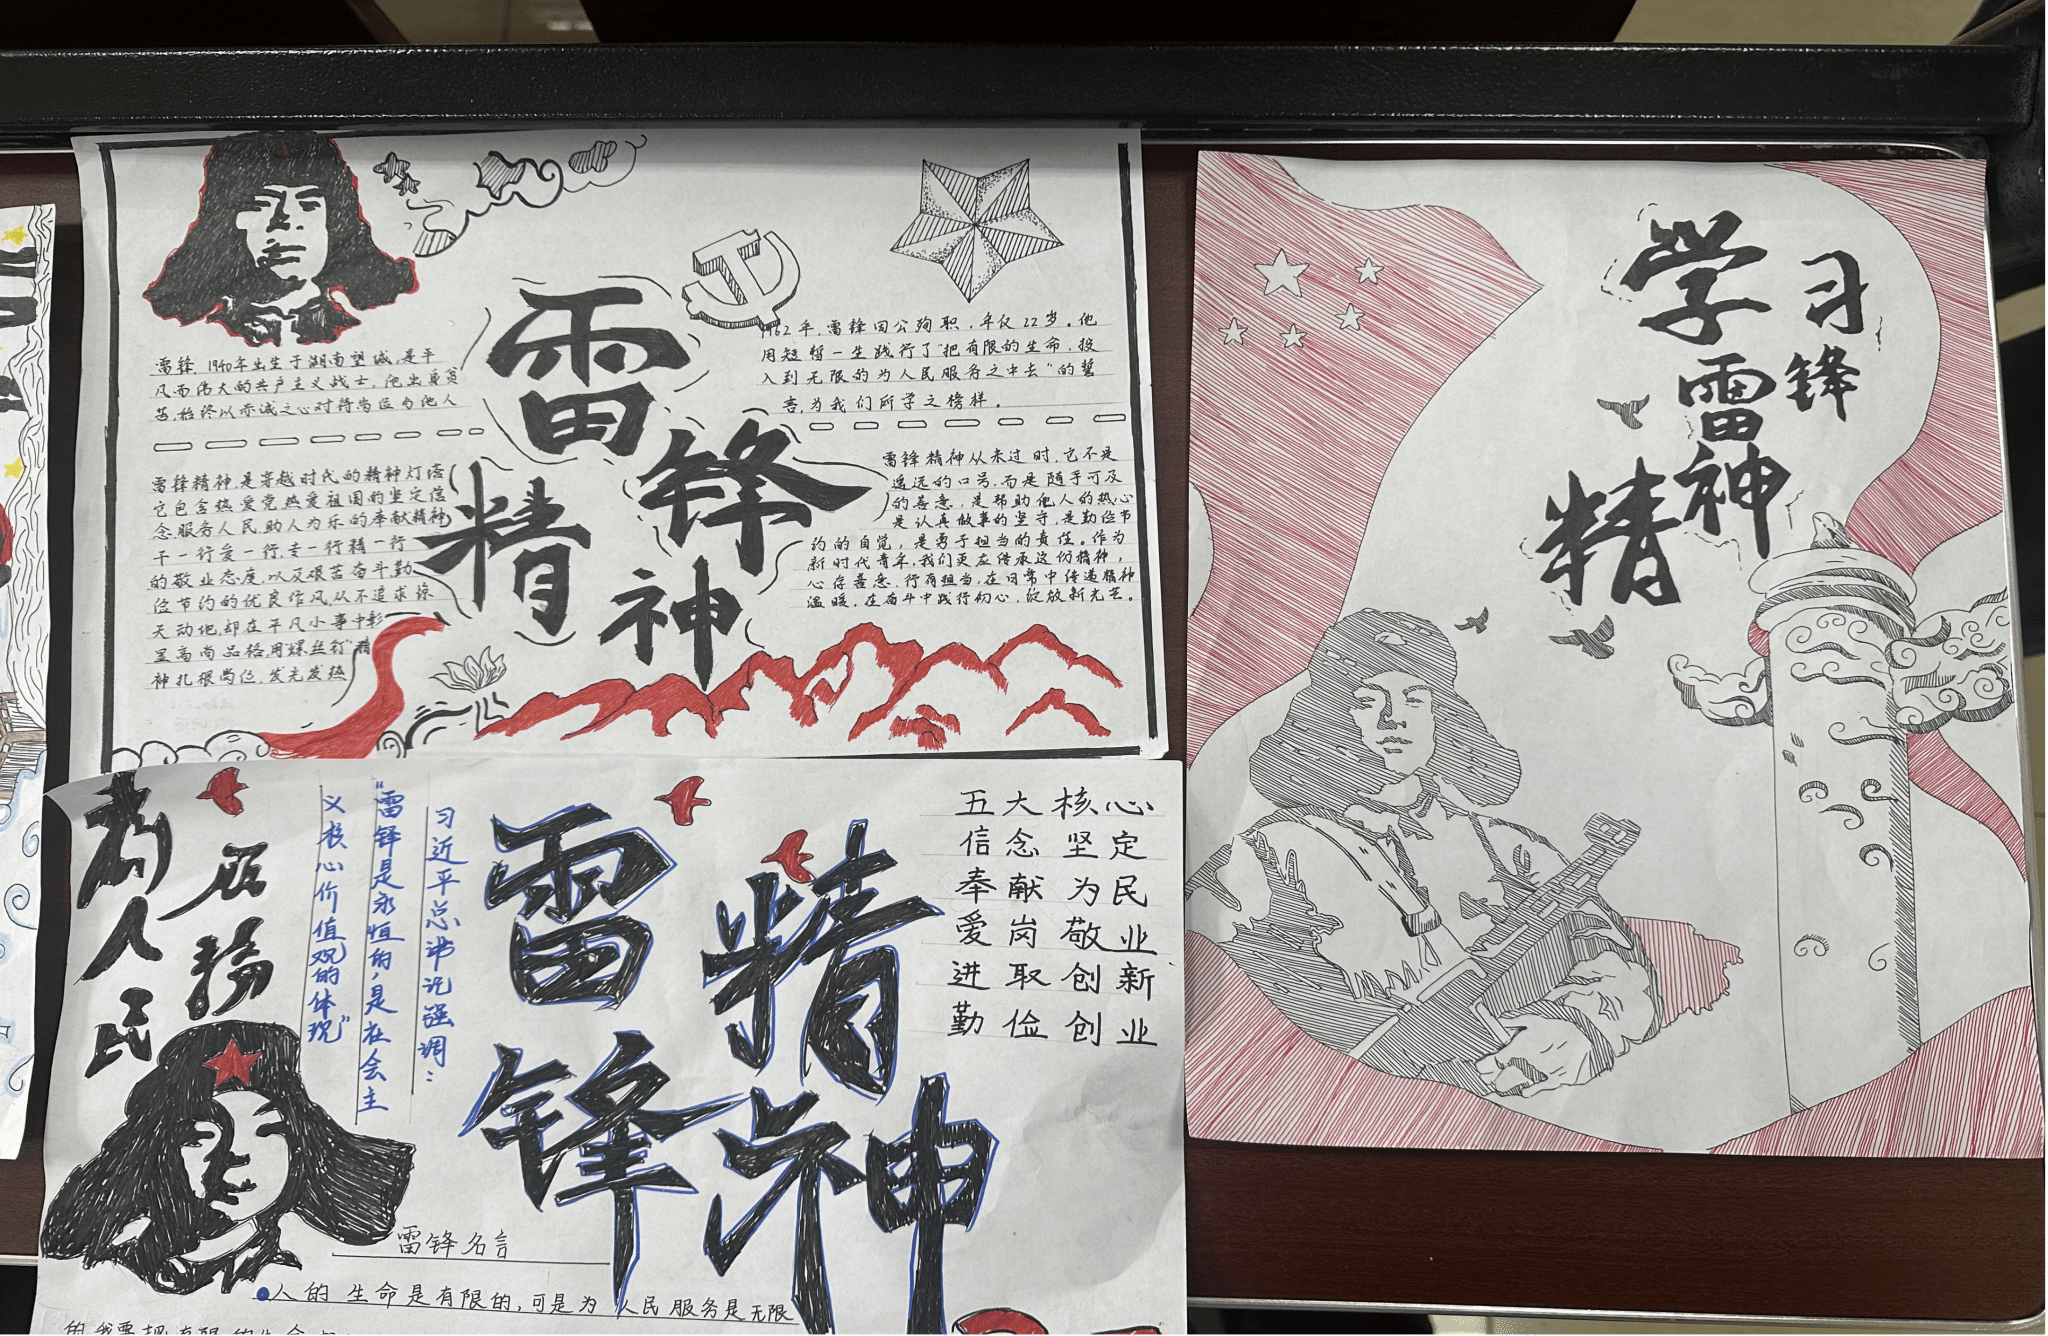 雷锋精神
雷锋，1940年出生于湖南望城，是平
凡而伟大的共产主义战士，他出身贫
苦，始终以赤诚之心对待岗位与他人
雷锋精神，是穿越时代的精神灯塔
它包含热爱党热爱祖国的坚定信
念服务人民，助人为乐的奉献精神
干一行爱一行，专一行精一行
的敬业态度，以及艰苦奋斗勤
俭节约的优良作风，从不追求惊
天动地，却在平凡小事中彰
显高尚品格，用“螺丝钉”精
神扎根岗位，发光发热
1962年，雷锋因公殉职，年仅22岁。他
用短暂一生践行了“把有限的生命，投
入到无限的为人民服务之中去”的誓
言，为我们所学之榜样。
雷锋精神从未过时，它不是
遥远的口号，而是随手可及
的善意，是帮助他人的热心
是认真做事的坚守，是勤俭节
约的自觉，是勇于担当的责任。作为
新时代青年，我们更应传承这份精神，
心存善意，行有担当，在日常中传递精神
温暖，在奋斗中践行初心，绽放新光芒。
为人民
服务
习近平总书记强调：
“雷锋是永恒的，是在会主
义核心价值观的体现”
雷锋
精神
五大核心
信念坚定
奉献为民
爱岗敬业
进取创新
勤俭创业
雷锋名言
人的生命是有限的，可是为人民服务是无限
的我要把有限的生命
学习
雷锋
精神